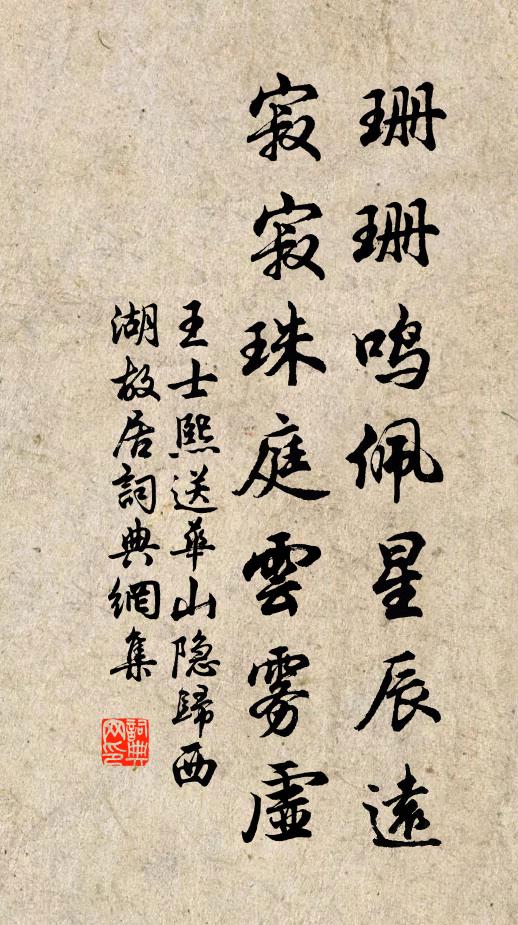 珊珊鸣佩星辰遠
寂寂珠庭雲雾虛
王士熙送華山隐歸西
湖故居詞典網集
詞典网印